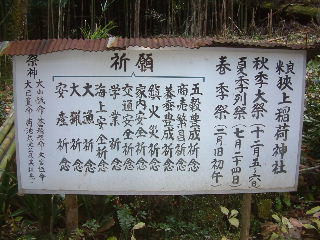 良米
狭上稲荷神社
秋季大祭(十二月五・六日)
夏季例祭(七月二十四日)
春季祭(二月旧初午)
祈願
五穀豊成祈念
商売繁昌祈念
養蚕豊成祈念
鎮火災祈念
家内安全祈念
交通安全祈念
学業祈念
海上安全祈念
大漁祈念
大猟祈念
安産祈念
祭神